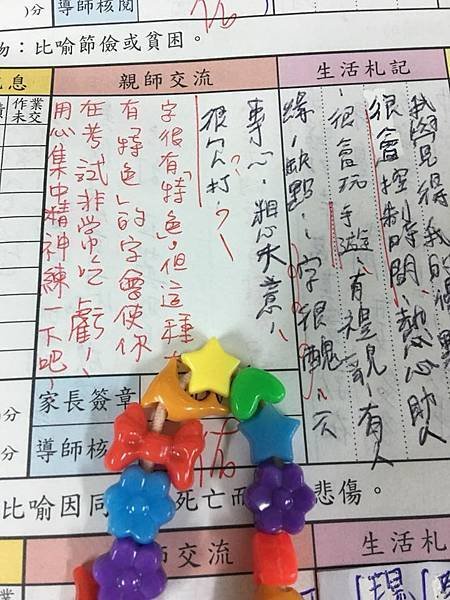 )分
導師核閱
物：比喻節儉或貧困。
訊息
親師交流
生活札記
作業未交
我覺得我的優點
很會控制時間、熱心助人
、很會玩手遊、有禮貌、有人
緣，缺點：字很醜、不
專心、粗心大意、
很欠打，
字很有「特色」但這種
有「特色」的字會使你
在考試非常吃虧，
用心集中精神練一下吧！
)分
家長簽章
)分
導師核
比喻因同
死亡而
悲傷。
師交流
生活札